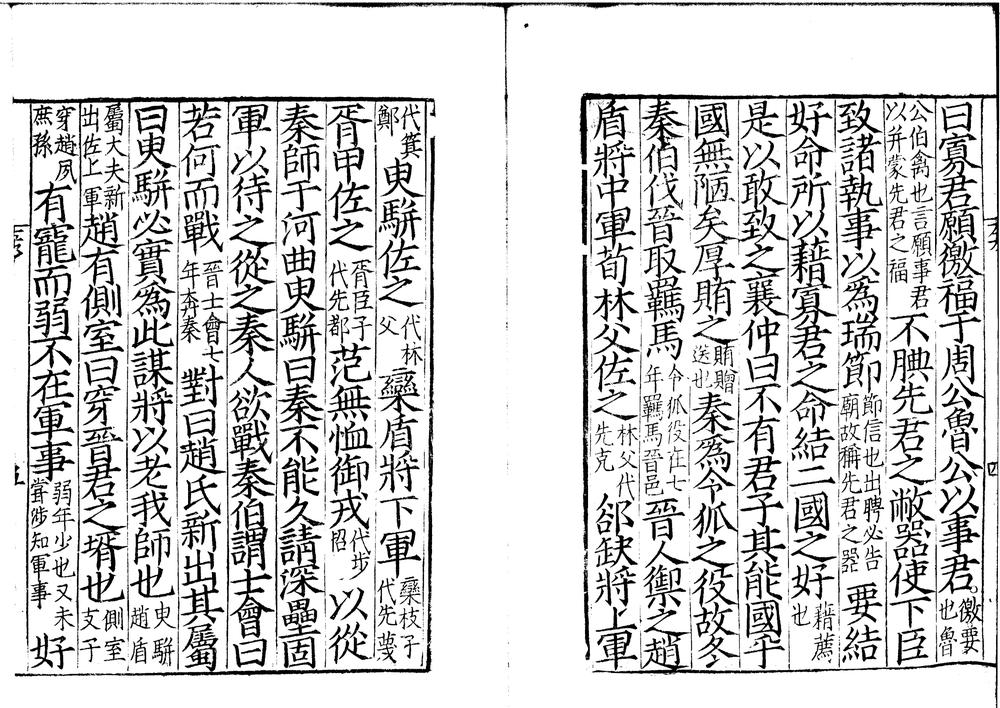 曰寡君願徼福于周公魯公以事君徼要也魯
公伯禽也言願事君以并蒙先君之福不腆先君之敝器使下臣
致諸執事以為瑞節節信也出聘必告廟故稱先君之器要結
好命所以藉寡君之命結二國之好藉薦也
是以敢致之襄仲曰不有君子其能國乎
國無陋矣厚賄之賄贈送也秦為令狐之役故冬
秦伯伐晉取羈馬令狐役在七年羈馬晉邑晉人禦之趙
盾將中軍荀林父佐之林父代先克郤缺將上軍
四
代箕鄭臾駢佐之代林父欒盾將下軍欒枝子代先蔑
胥甲佐之胥臣子代先都范無恤御戎代步招以從
秦師于河曲臾駢曰秦不能久請深壘固
軍以待之從之秦人欲戰秦伯謂士會曰
若何而戰晉士會七年奔秦對曰趙氏新出其屬
曰臾駢必實為此謀將以老我師也臾駢趙盾
屬大夫新出佐上軍趙有側室曰穿晉君之壻也側室支子
穿趙夙庶孫有寵而弱不在軍事弱年少也又未嘗涉知軍事好
五